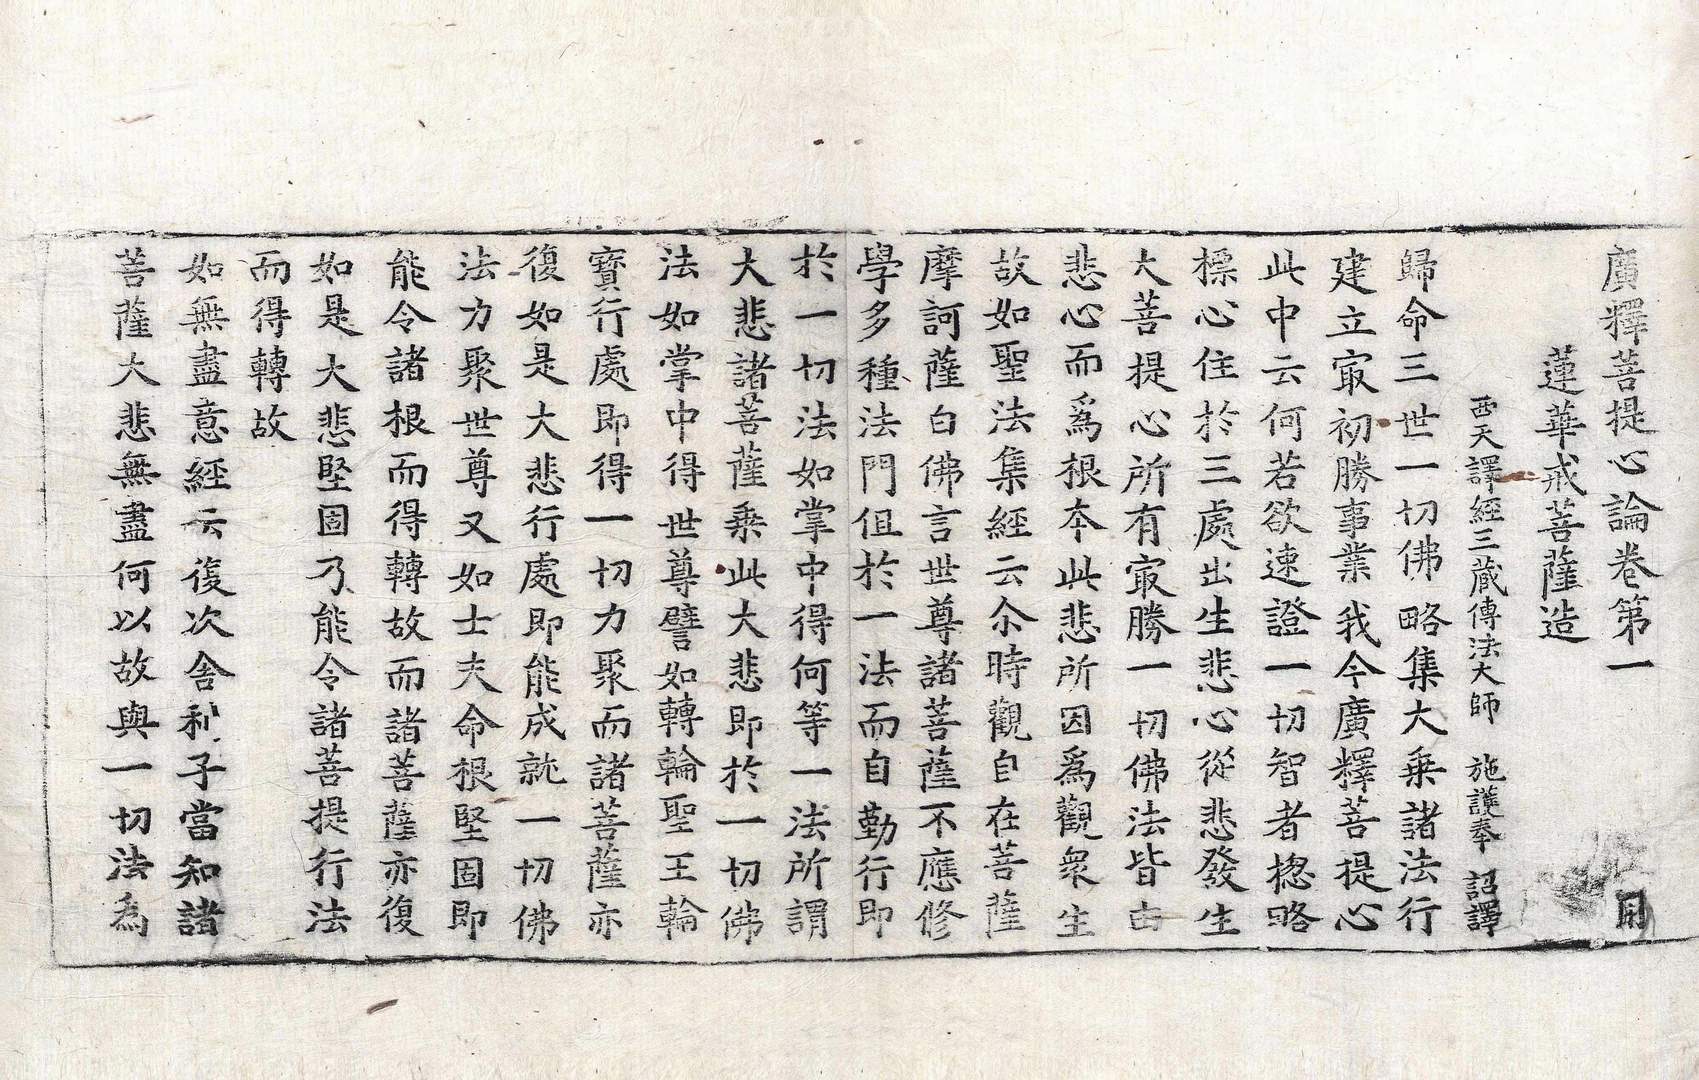 廣釋菩提心論卷第一
蓮華戒菩薩造
西天譯經三藏傳法大師 施護奉 詔譯
歸命三世一切佛 略集大乗諸法行
建立㝡初勝事業 我今廣釋菩提心
此中云何若欲速證一切智者揔略
標心住於三處出生悲心從悲發生
大菩提心所有㝡勝一切佛法皆由
悲心而爲根本此悲所因爲觀衆生
故如聖法集經云尒時觀自在菩薩
摩訶薩白佛言世尊諸菩薩不應修
學多種法門但於一法而自勤行即
於一切法如掌中得何等一法所謂
大悲諸菩薩乗此大悲即於一切佛
法如掌中得世尊譬如轉輪聖王輪
寳行處即得一切力聚而諸菩薩亦
復如是大悲行處即能成就一切佛
法力聚世尊又如士夫命根堅固即
能令諸根而得轉故而諸菩薩亦復
如是大悲堅固乃能令諸菩提行法
而得轉故
如無盡意經云復次舍利子當知諸
菩薩大悲無盡何以故與一切法爲